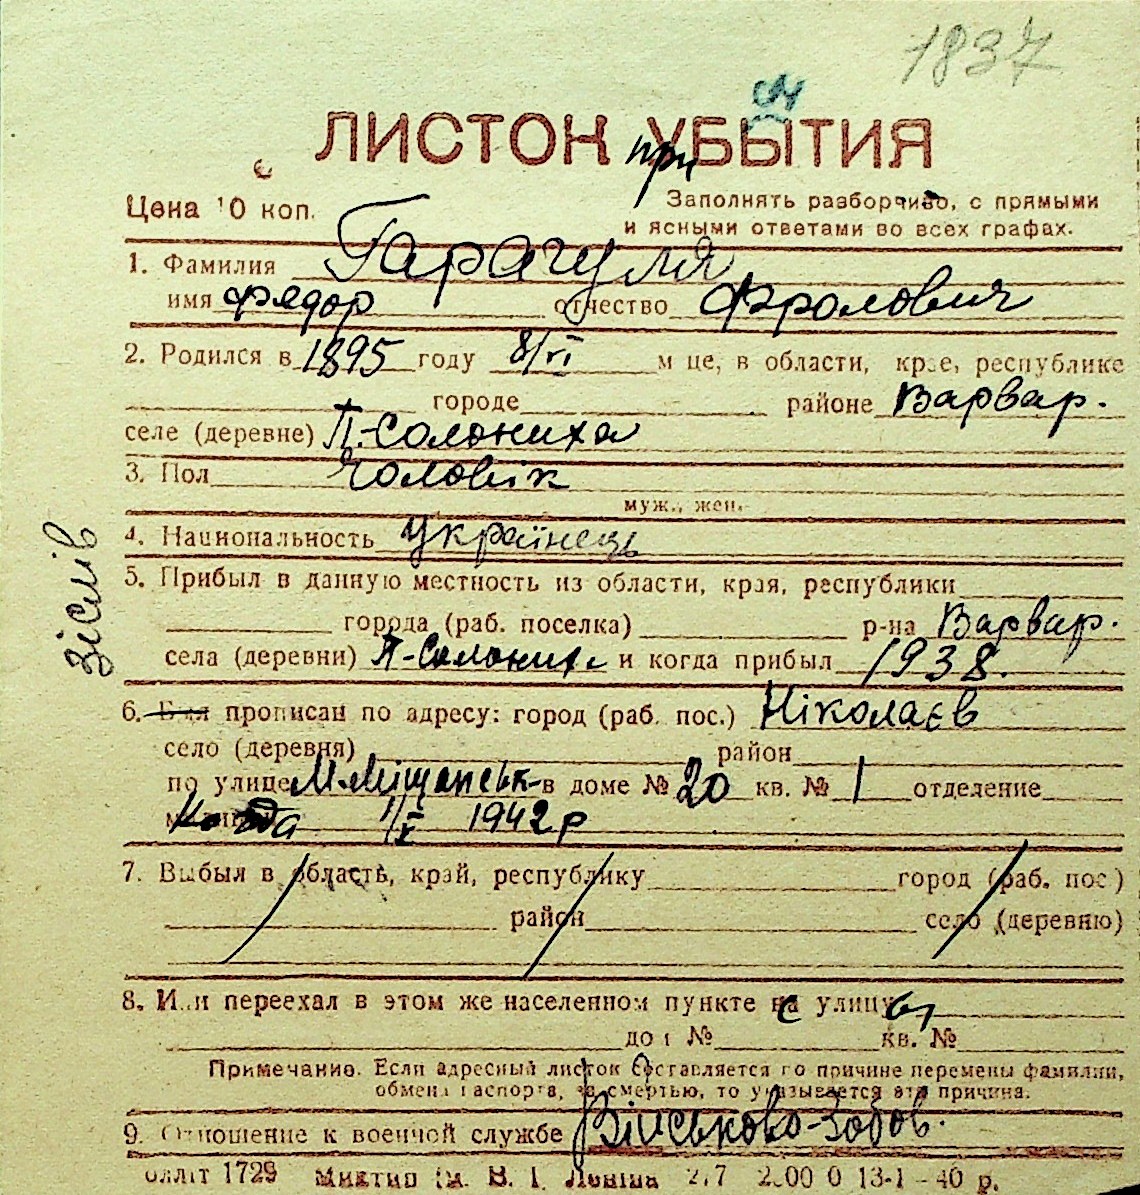 1837
ЛИСТОК при УБЫТИЯ
Цена 10 коп.
Заполнять разборчиво, с прямыми
и ясными ответами во всех графах.
1. Фамилия Гарагуля
имя Фядор отчество Фролович
2. Родился в 1895 году 8/VI м це, в области, крае, республике
городе районе Варвар.
селе (деревне) П.-Солониха
3. Пол Чоловік
муж., жен.
4. Национальность Українець
5. Прибыл в данную местность из области, края, республики
города (раб. поселка) р-на Варвар.
села (деревни) П-Солоних и когда прибыл 1938.
зіслів
6. Был прописан по адресу: город (раб. пос.) Ніколаєв
село (деревня) район
по улице М.Міщанськ в доме № 20 кв. № 1 отделение
Когда 1/X 1942 р
7. Выбыл в область, край, республику город (раб. пос)
район село (деревню)
8. Или переехал в этом же населенном пункте на с улицу
до № кв. №
Примечание. Если адресный листок составляется по причине перемены фамилии,
обмена паспорта, за смертью, то указывается эта причина.
9. Отношение к военной службе Військово-Зобов.
1729 им. В. І. Леніна 2.7 13-1-40 р.